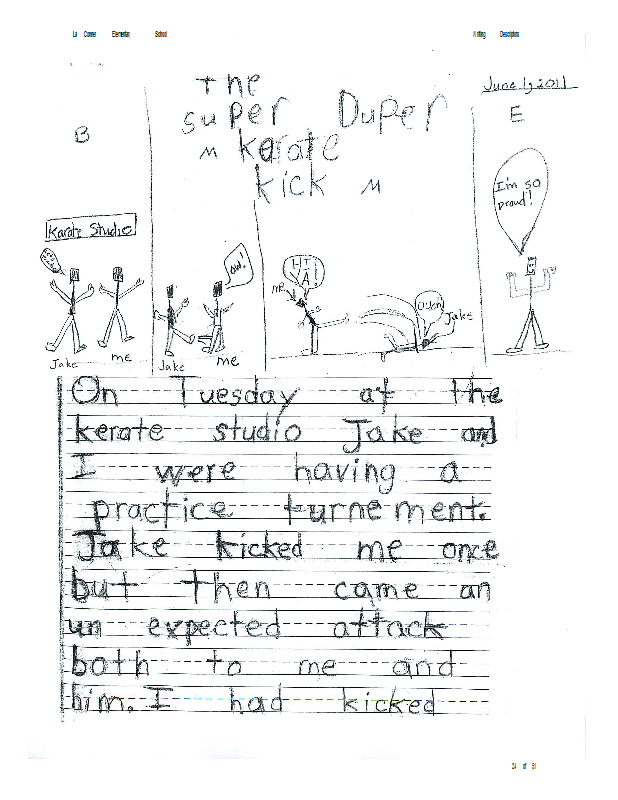 La Conner Elementary School
Writing Descriptors
June 1, 2011
The
super Duper
M karate
kick M
B
E
Karate Studio
Ow!
HI
YA!
me
Ouch!
Jake
I'm so
proud!
Jake me
Jake me
On Tuesday at the
kerate studio Jake and
I were having a
practice turnement.
Jake kicked me once
but then came an
un expected attack
both to me and
him. I had kicked
24 of 91